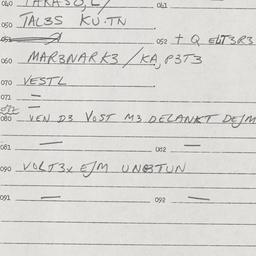 040 TARASO, L/ 041
050 TAL3S KU.TN
051 052 + Q ELT3R3
060 MAR3NARK3 / KA, P3T3
070 VESTL
071 —
072
080 VEN D3 VOST M3 DELANKT DEJM
081 — 082 —
090 VOLT3x EJM UN8TUN
091 — 092 —